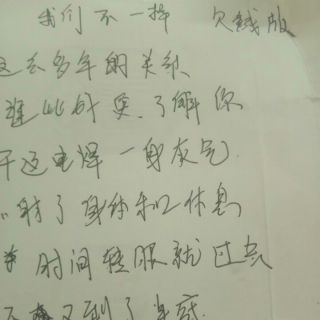 我们不一样 欠钱版
这么多年的关系
谁比我更了解你
干这电焊一身灰尘
射了身体和休息
时间转眼就过去
又到了年底